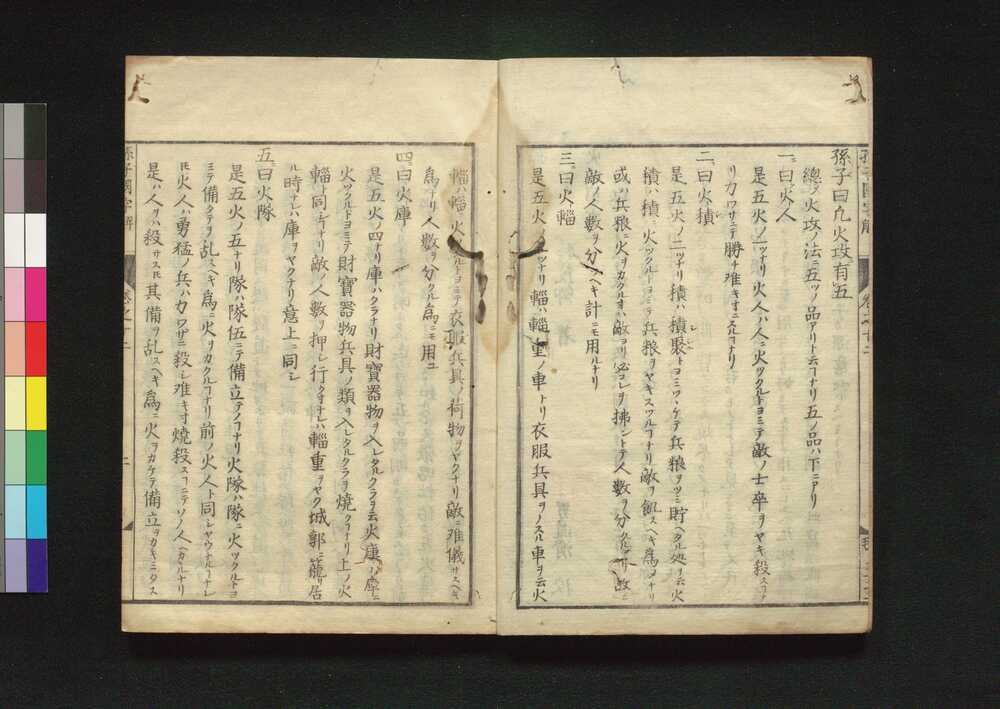 孫子曰凡火攻有五
總〆火攻ノ法ニ五ツノ品アリト云ヿナリ五ノ品ハ下ニアリ
一ニ曰火人
是五火ノ一ツナリ火人ハ人ニ火ツクルトヨミテ敵ノ士卒ヲヤキ殺スヿナ
リ力ワザニテ勝チ難キ寸ニスルヿナリ
二ニ曰火積
是五火ノ二ツナリ積ハ積聚トヨミツヽケテ兵粮ヲツミ貯ヘタル処ヲ云火
積ハ積ニ火ツクルトヨミテ兵粮ヲヤキスツルヿナリ敵ヲ飢スヘキ爲メナリ
或ハ兵粮ニ火ヲカクルヰハ敵ヨリ必コレヲ拂ントテ人數ヲ分クルナリ故ニ
敵ノ人數ヲ分スヘキ計ニモ用ルナリ
三ニ曰火輜
是五火ノ三ツナリ輜ハ輜重ノ車トリ衣服兵具ヲノスル車ヲ云火
輜ハ輜ニ火ツクルトヨミテ衣服兵具ノ荷物ヲヤクナリ敵ニ难儀サスヘキ
爲ナリ人數ヲ分クル爲ニモ用ユ
四ニ曰火庫
是五火ノ四ナリ庫ハクラナリ財寶器物ヲ入レタルクラヲ云火庫ハ庫ニ
火ツクルトヨミテ財寶器物兵具ノ類ヲ入レタルクラヲ燒クヿナリ上ノ火
輜ト同シヿナリ敵ノ人數ヲ押シ行クトキナレハ輜重ヲヤク城郭ニ籠リ居
ル時ナレハ庫ヲヤクナリ意上ニ同シ
五ニ曰火隊
是五火ノ五ナリ隊ハ隊伍ニテ備立テノヿナリ火隊ハ隊ニ火ツクルトヨ
ミテ備クテヲ乱スヘキ爲ニ火ヲカクルヿナリ前ノ火人ト同シヤウナルヿナレ
𪜈火人ハ勇猛ノ兵ハ力ワザニ殺シ难キ寸燒殺スヿニテソノ人ヘカヽルナリ
是ハ人ヲハ殺サス𪜈其備ヲ乱スヘキ爲ニ火ヲカケテ備立ヲカキミタス